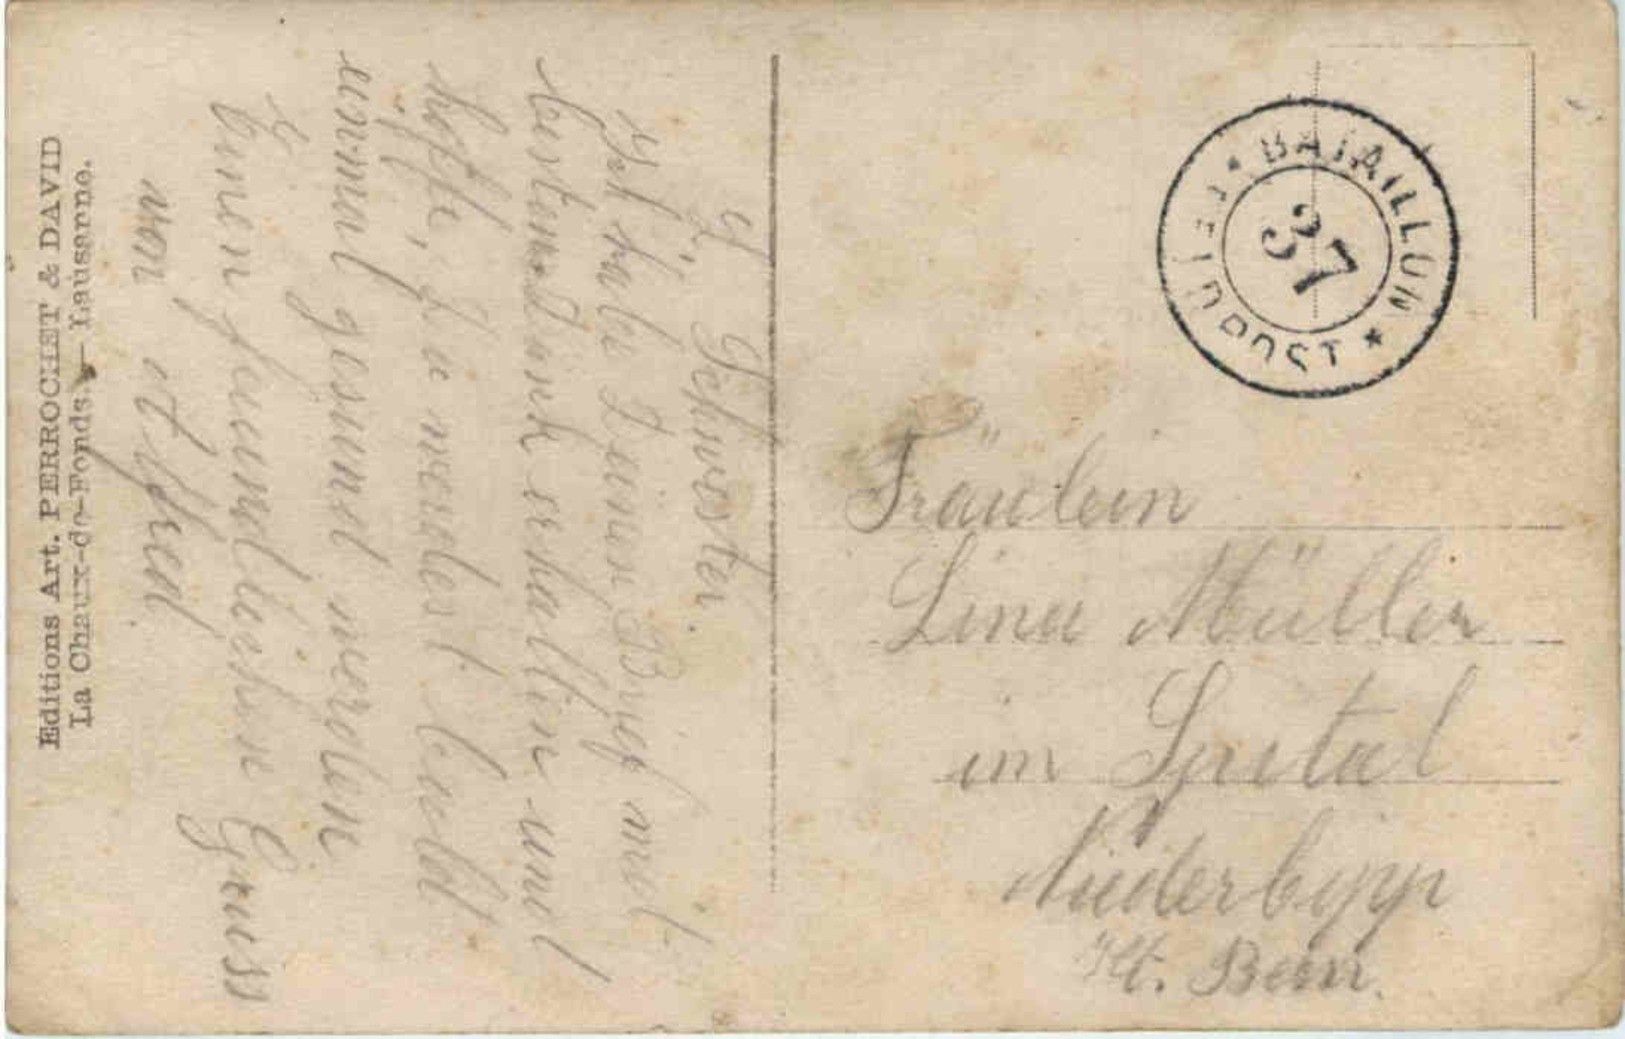 Editions Art. PERROCHET & DAVID
La Chaux-de-Fonds. — Lausanne.
L. Schwester.
Ich habe Deinen Brief mit
bestem Dank erhalten und
hoffe, Du werdest bald
einmal gesund werden
Einen freundlichen Gruss
von Alfred
BATAILLON
37
FELDPOST
Fräulein
Lina Müller
im Spital
Niederbipp
Kt. Bern.